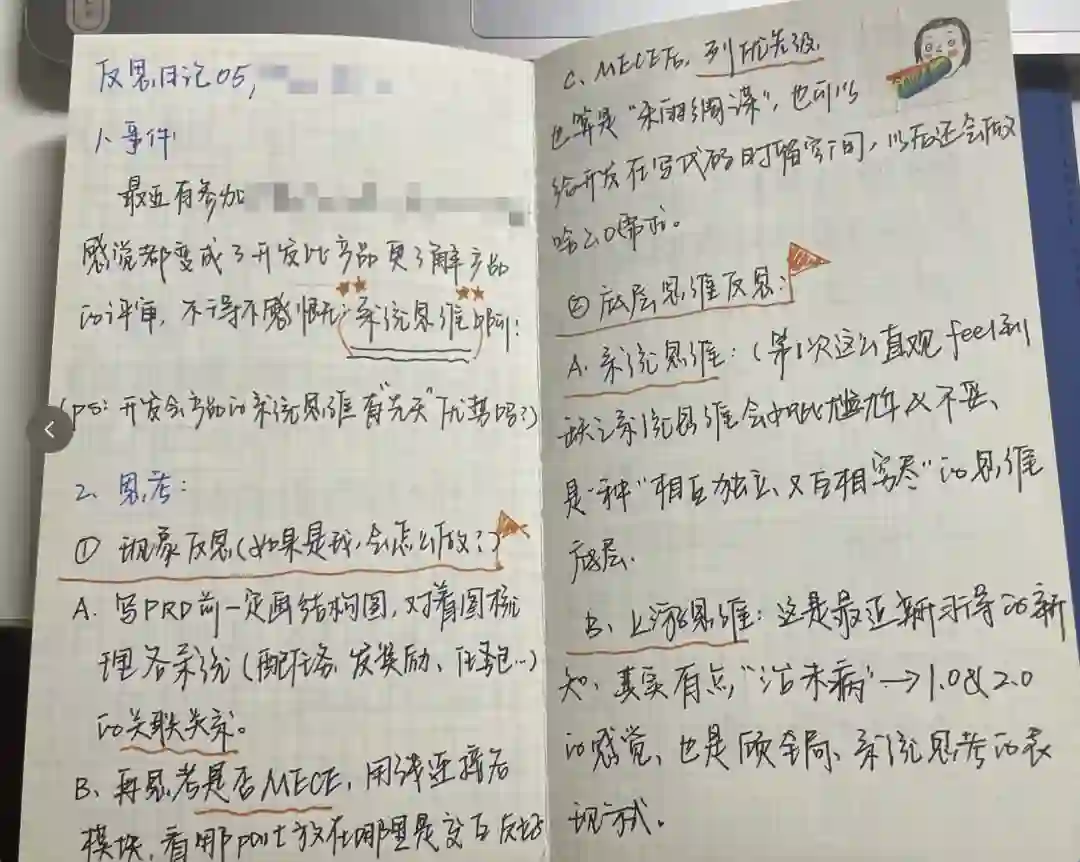 反思日记05,
1、事件
最近有参加
感觉都变成了开发比产品更了解产品
的评审，不得不感慨无：系统思维
(ps：开发会产品的系统思维有"先天"优势吗？)
2、思考：
① 现象反思(如果是我，会怎么做？)
A、写PRD前一定画结构图，对着图梳
理各系统(配任务、发奖励、任务包…)
的关联关系。
B、再思考是否MECE，用线连接各
模块，看哪part放在哪里是交互
C、MECE后，列优先级
也算是"未雨绸谋"，也可以
给开发在写代码时留空间，以后还会做
啥么的。
② 底层思维反思：
A、系统思维：(第1次这么直观feel到
缺乏系统思维会如此尴尬又不妥、
是一种"相互独立、又互相穷尽"的思维
底层.
B、上游思维：这是最近新习得的新
知、其实有点"治未病"→1.0&2.0
的感觉、也是顾全局、系统思考的表
现方式.